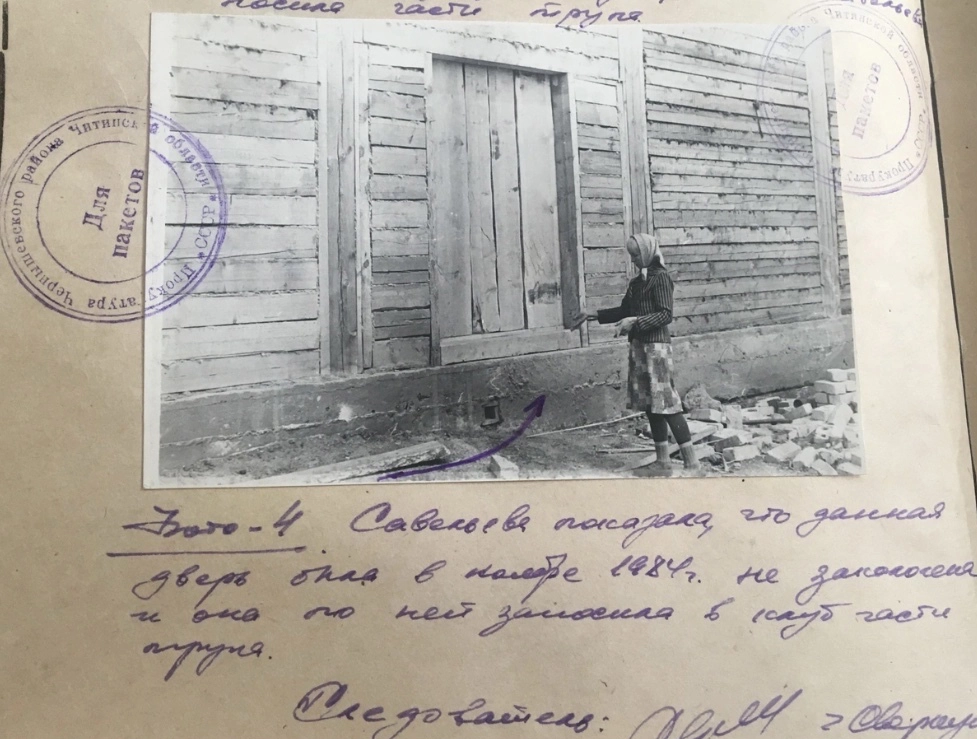 носила части трупа.
Прокуратура Чернышевского района Читинской области * СССР *
Для
пакетов
Читинской области * СССР * Прокурату
пакетов
Фото-4. Савельева показала, что данная
дверь была в ноябре 1984г. не заколочена
и она по ней заносила в клуб части
трупа.
Следователь: